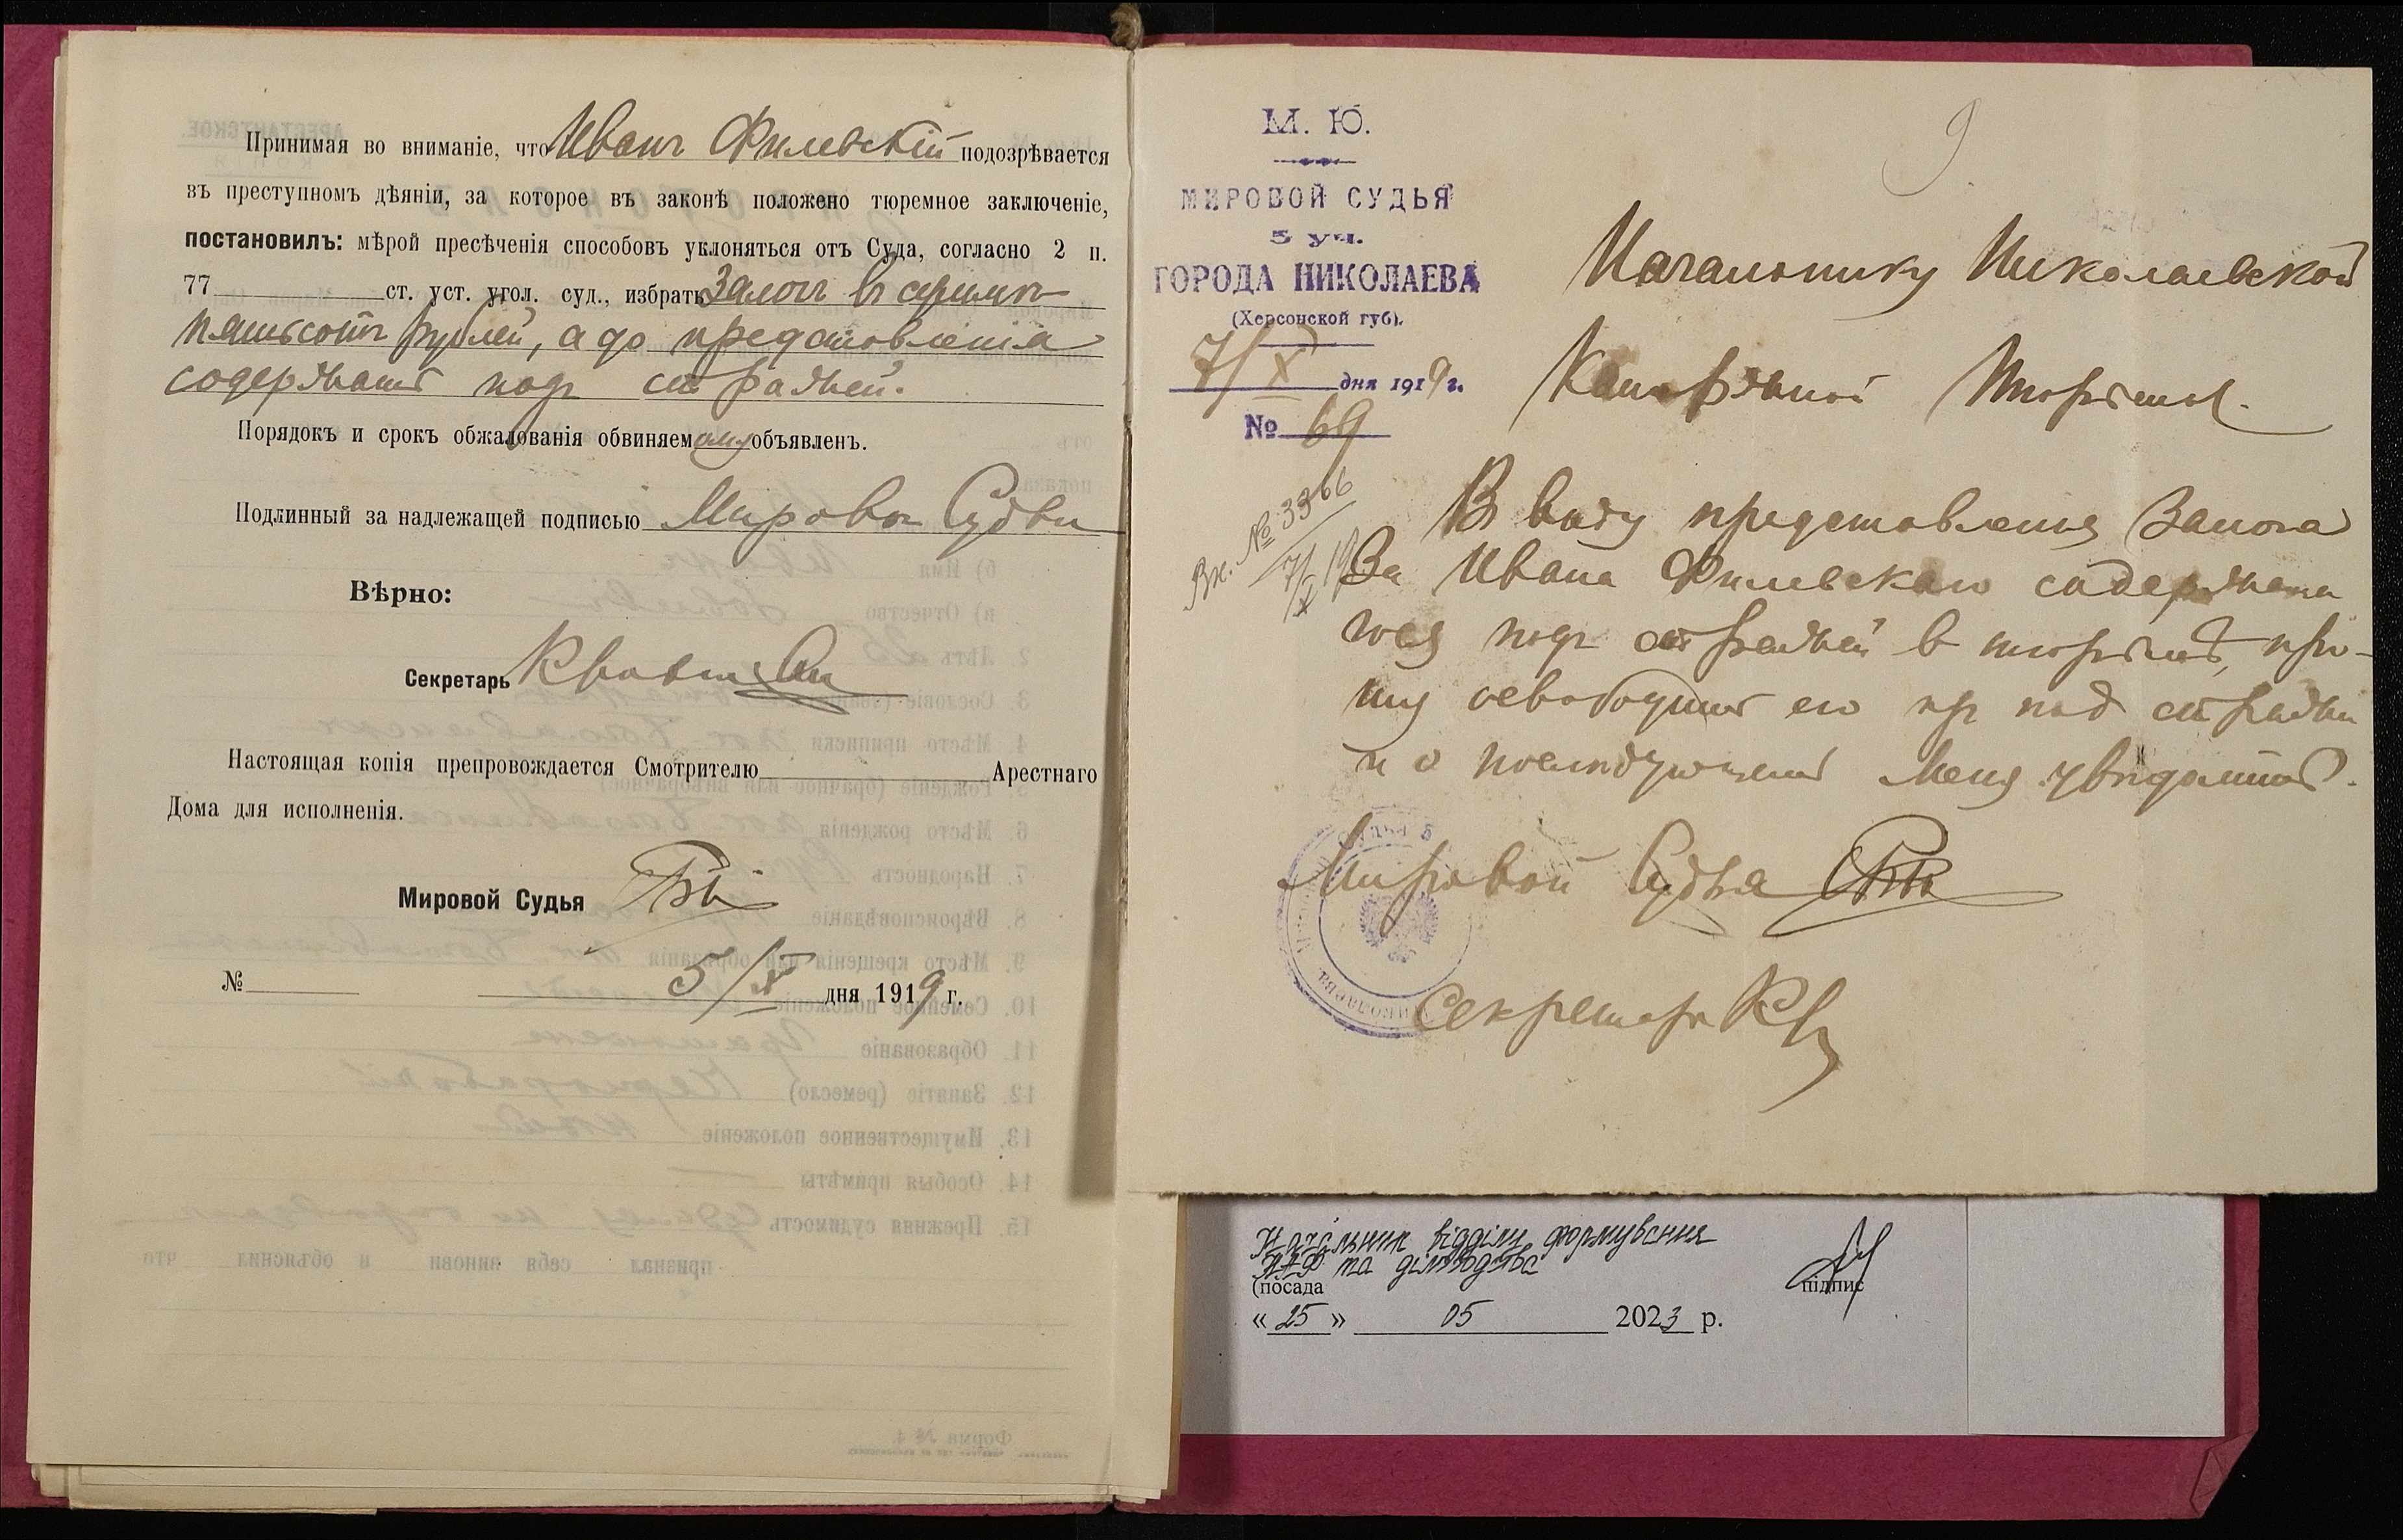 Принимая во вниманіе, что Иванъ Филевскій подозрѣвается
въ преступномъ дѣяніи, за которое въ законѣ положено тюремное заключеніе,
постановилъ: мѣрой пресѣченія способовъ уклоняться отъ Суда, согласно 2 п.
77 ст. уст. угол. суд., избрать Залогъ въ суммѣ
пятьсотъ рублей, а до представленія
содержать подъ стражей.
Порядокъ и срокъ обжалованія обвиняемому объявленъ.
Подлинный за надлежащей подписью Мировой Судьи
Вѣрно:
Секретарь
Настоящая копія препровождается Смотрителю Арестнаго
Дома для исполненія.
Мировой Судья
№ 5/X дня 1919 г.
М. Ю.
МИРОВОЙ СУДЬЯ
5 уч.
ГОРОДА НИКОЛАЕВА
(Херсонской губ).
7/X дня 1919 г.
№ 69
Вх. № 3366
7/X 19
9
Начальнику Николаевской
Каторжной Тюрьмы.
В виду представления Залога
За Ивана Филевскаго содержаща
гося подъ стражей в тюрьмѣ, про-
шу освободить его из под стражи
и о последующемъ меня увѣдомить.
Мировой Судья
Секретарь
Начальник відділу формування
НАФ та діловодства
(посада підпис
« 25 » 05 2023 р.